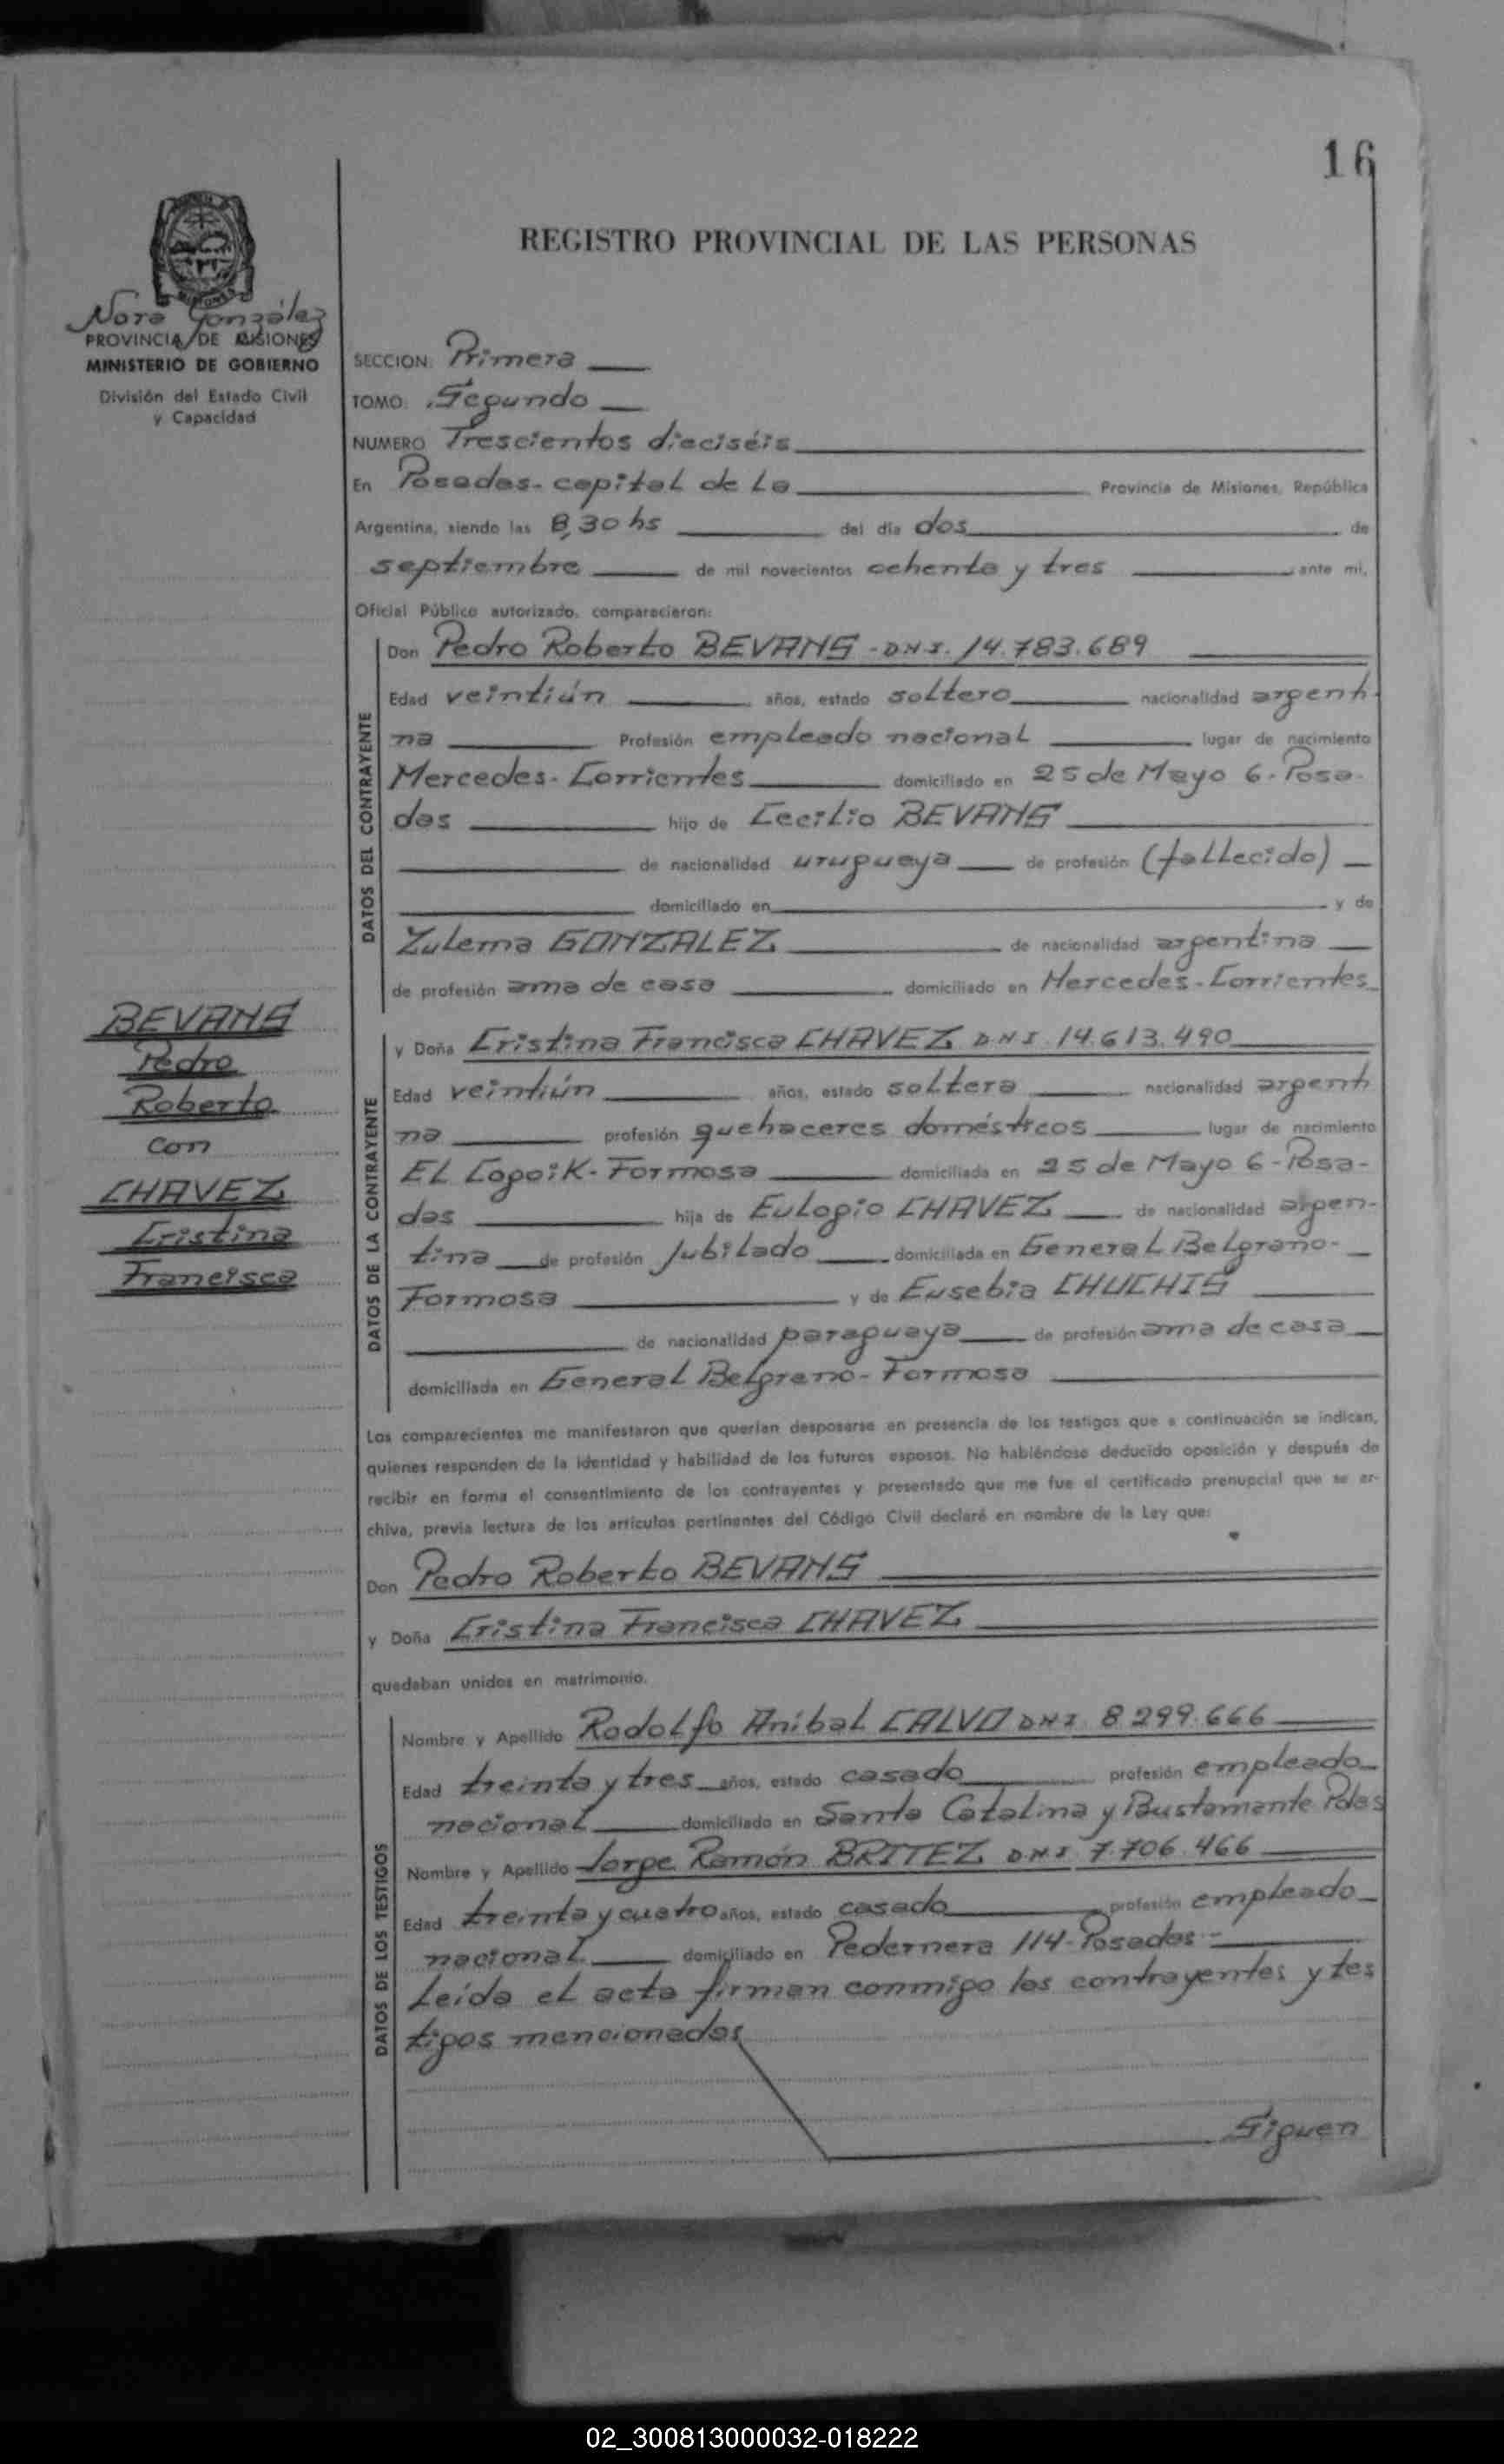 16
REGISTRO PROVINCIAL DE LAS PERSONAS
Nora González
PROVINCIA DE MISIONES
MINISTERIO DE GOBIERNO
División del Estado Civil
y Capacidad
SECCION: Primera
TOMO: Segundo
NUMERO Trescientos dieciséis
En Posadas- capital de la Provincia de Misiones, República
Argentina, siendo las 8,30 hs del día dos de
septiembre de mil novecientos ochenta y tres ante mi,
Oficial Público autorizado, comparecieron:
DATOS DEL CONTRAYENTE
Don Pedro Roberto BEVANS - DNI. 14.783.689
Edad veintiún años, estado soltero nacionalidad argenti-
na Profesión empleado nacional lugar de nacimiento
Mercedes- Corrientes domiciliado en 25 de Mayo 6- Posa-
das hijo de Cecilio BEVANS
de nacionalidad uruguaya de profesión (fallecido)
domiciliado en y de
Zulema GONZALEZ de nacionalidad argentina
de profesión ama de casa domiciliado en Mercedes- Corrientes
BEVANS
Pedro
Roberto
con
CHAVEZ
Cristina
Francisca
DATOS DE LA CONTRAYENTE
y Doña Cristina Francisca CHAVEZ DNI 14.613.490
Edad veintiún años, estado soltera nacionalidad argenti
na profesión quehaceres domésticos lugar de nacimiento
El Copoik- Formosa domiciliada en 25 de Mayo 6- Posa-
das hija de Eulogio CHAVEZ de nacionalidad argen-
tina de profesión Jubilado domiciliada en General Belgrano-
Formosa y de Eusebia CHUCHIS
de nacionalidad paraguaya de profesión ama de casa
domiciliada en General Belgrano- Formosa
Los comparecientes me manifestaron que querían desposarse en presencia de los testigos que a continuación se indican,
quienes responden de la identidad y habilidad de los futuros esposos. No habiéndose deducido oposición y después de
recibir en forma el consentimiento de los contrayentes y presentado que me fue el certificado prenupcial que se ar-
chiva, previa lectura de los artículos pertinentes del Código Civil declaré en nombre de la Ley que:
Don Pedro Roberto BEVANS
y Doña Cristina Francisca CHAVEZ
quedaban unidos en matrimonio.
DATOS DE LOS TESTIGOS
Nombre y Apellido Rodolfo Anibal CALVO DNI 8.299.666
Edad treinta y tres años, estado casado profesión empleado
nacional domiciliado en Santa Catalina y Bustamante Pdas
Nombre y Apellido Jorge Ramón BRITEZ DNI 7.706.466
Edad treinta y cuatro años, estado casado profesión empleado
nacional domiciliado en Pedernera 114- Posadas-
Leída el acta firman conmigo los contrayentes y tes
tigos mencionados
Siguen
02_300813000032-018222